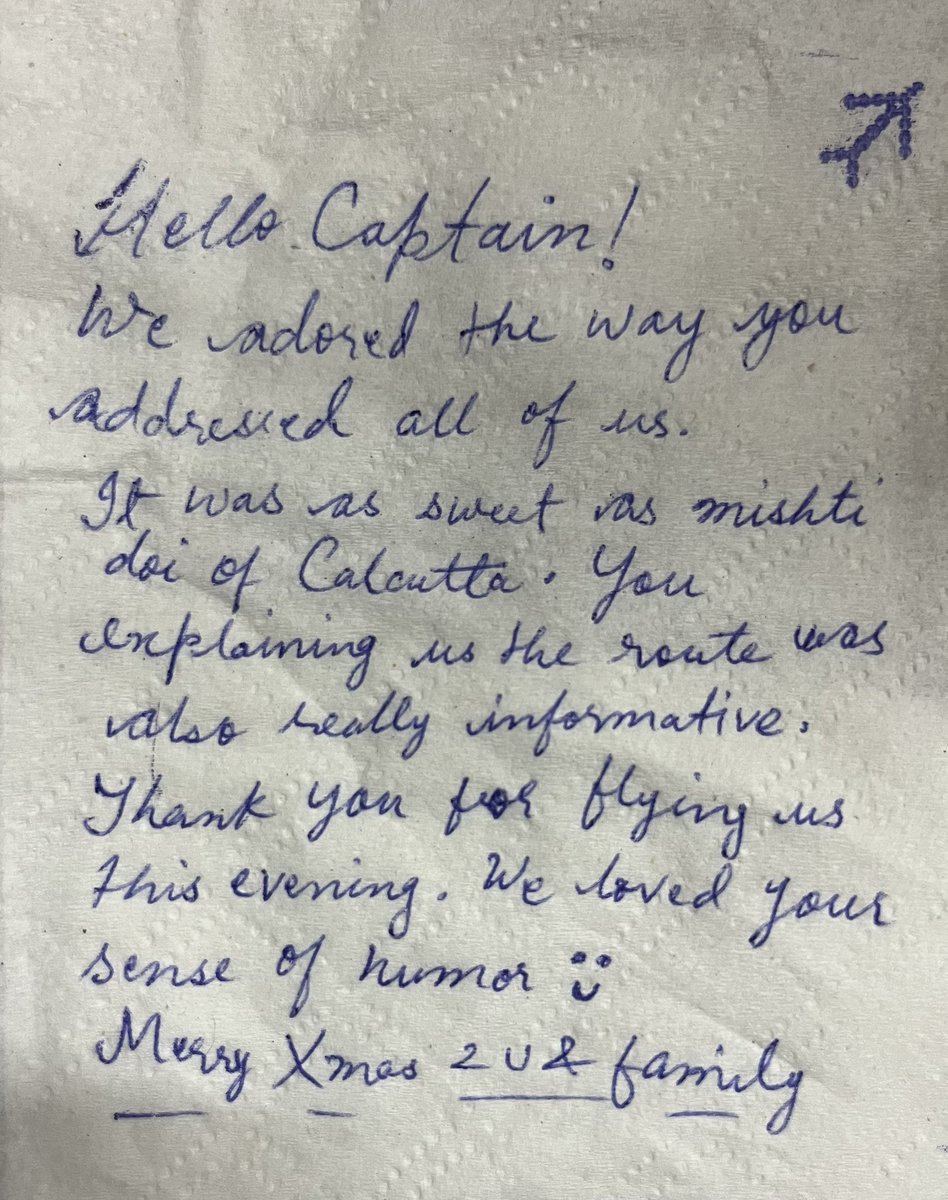 Hello Captain!
We adored the way you
addressed all of us.
It was as sweet as mishti
doi of Calcutta. You
explaining us the route was
also really informative.
Thank you for flying us
this evening. We loved your
sense of humor
Merry Xmas 2 U & family